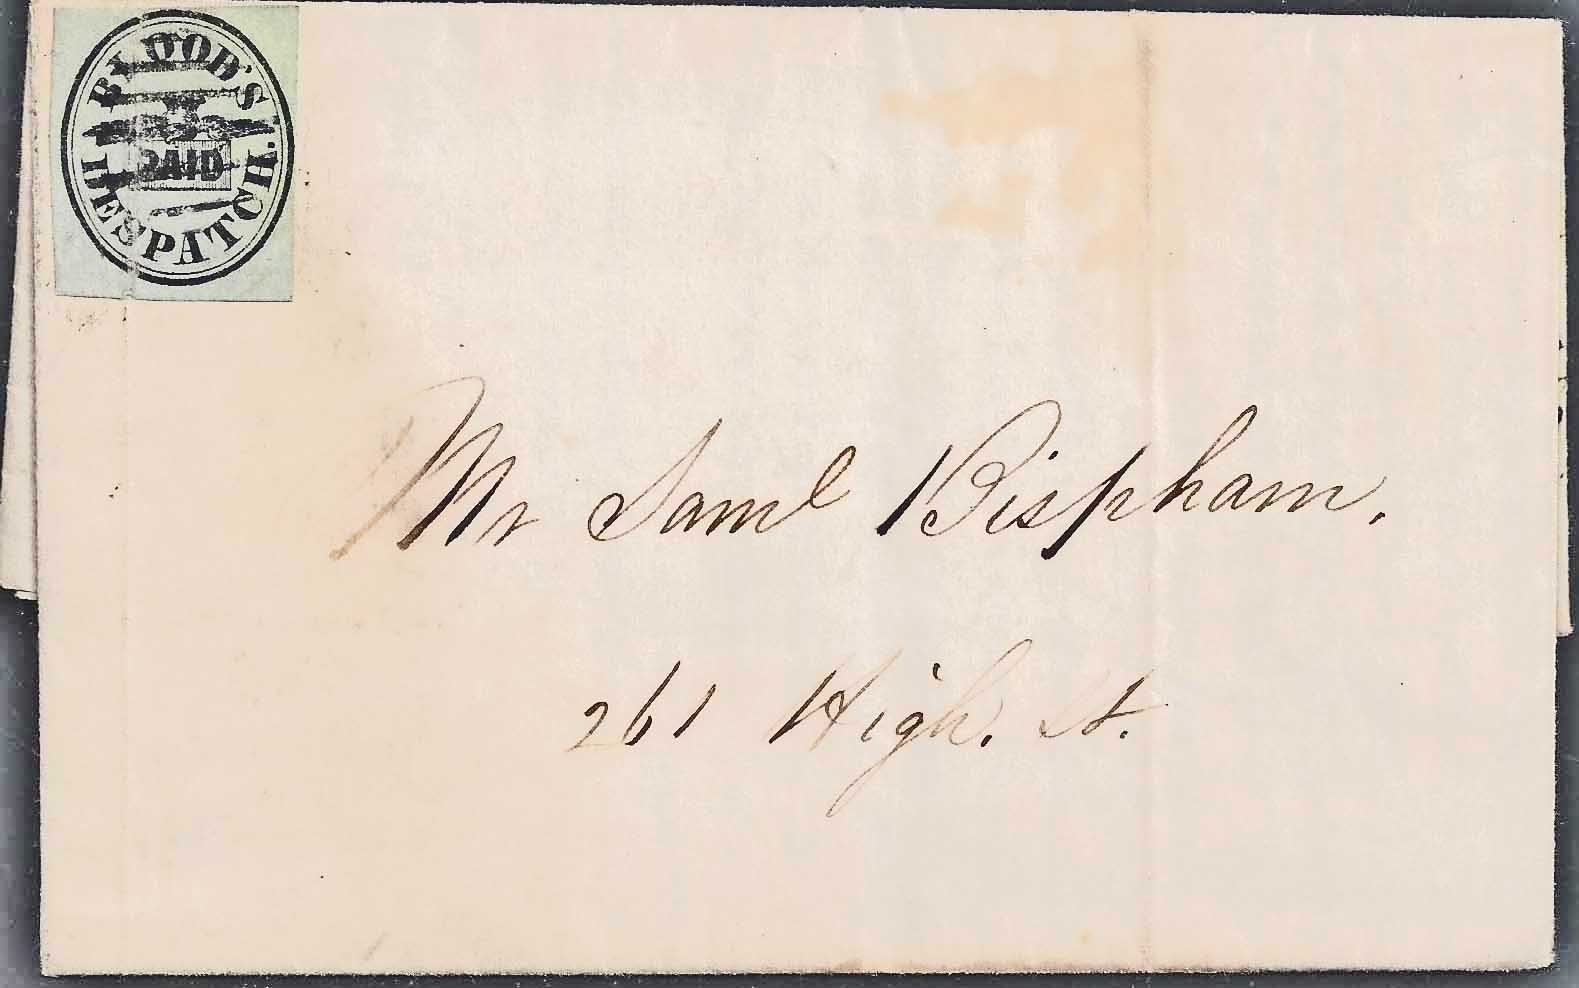 BLOOD'S
PAID
DESPATCH.
Mr Saml Bispham.
261 High. St.